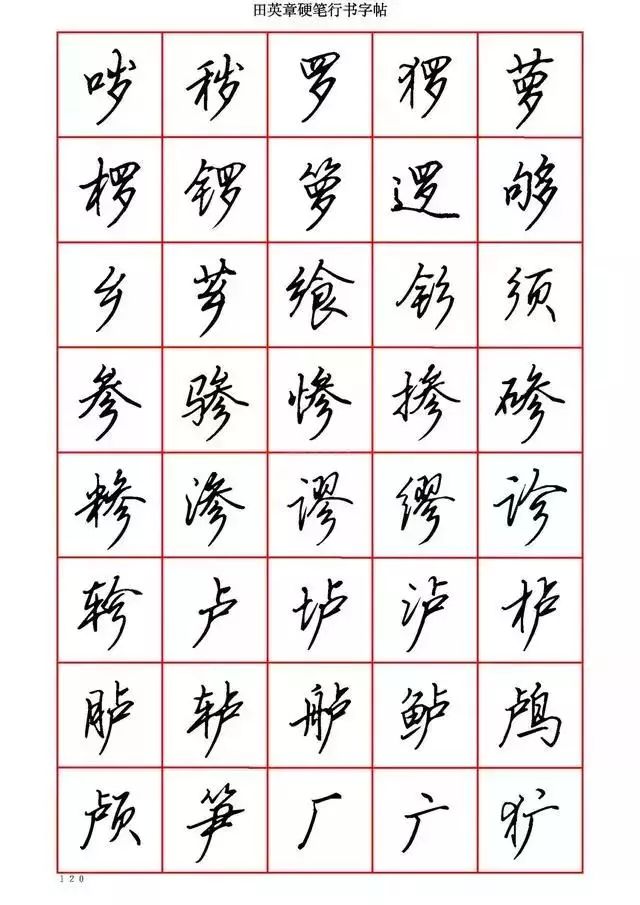 田英章硬笔行书字帖
哕 秽 罗 猡 萝
椤 锣 箩 逻 够
乡 芗 飨 钐 须
参 骖 惨 掺 碜
糁 渗 谬 缪 诊
轸 卢 垆 泸 栌
胪 轳 舻 鲈 鸬
颅 笋 厂 广 犷
120